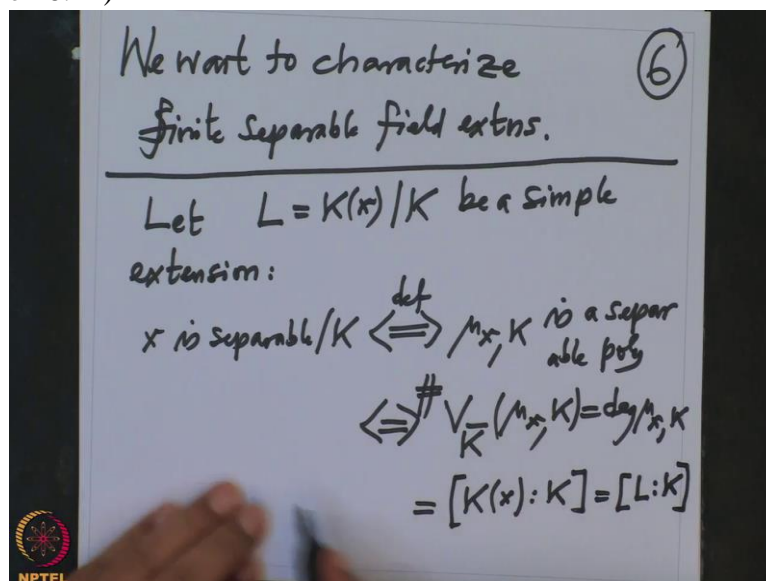 We want to characterize
finite separable field extns.
6
Let L = K(x)/K be a simple
extension:
x is separable/K <=> def μ_{x,K} is a separ
able poly
<=> # V_{\overline{K}}(μ_{x,K}) = deg μ_{x,K}
= [K(x):K] = [L:K]
NPTEL